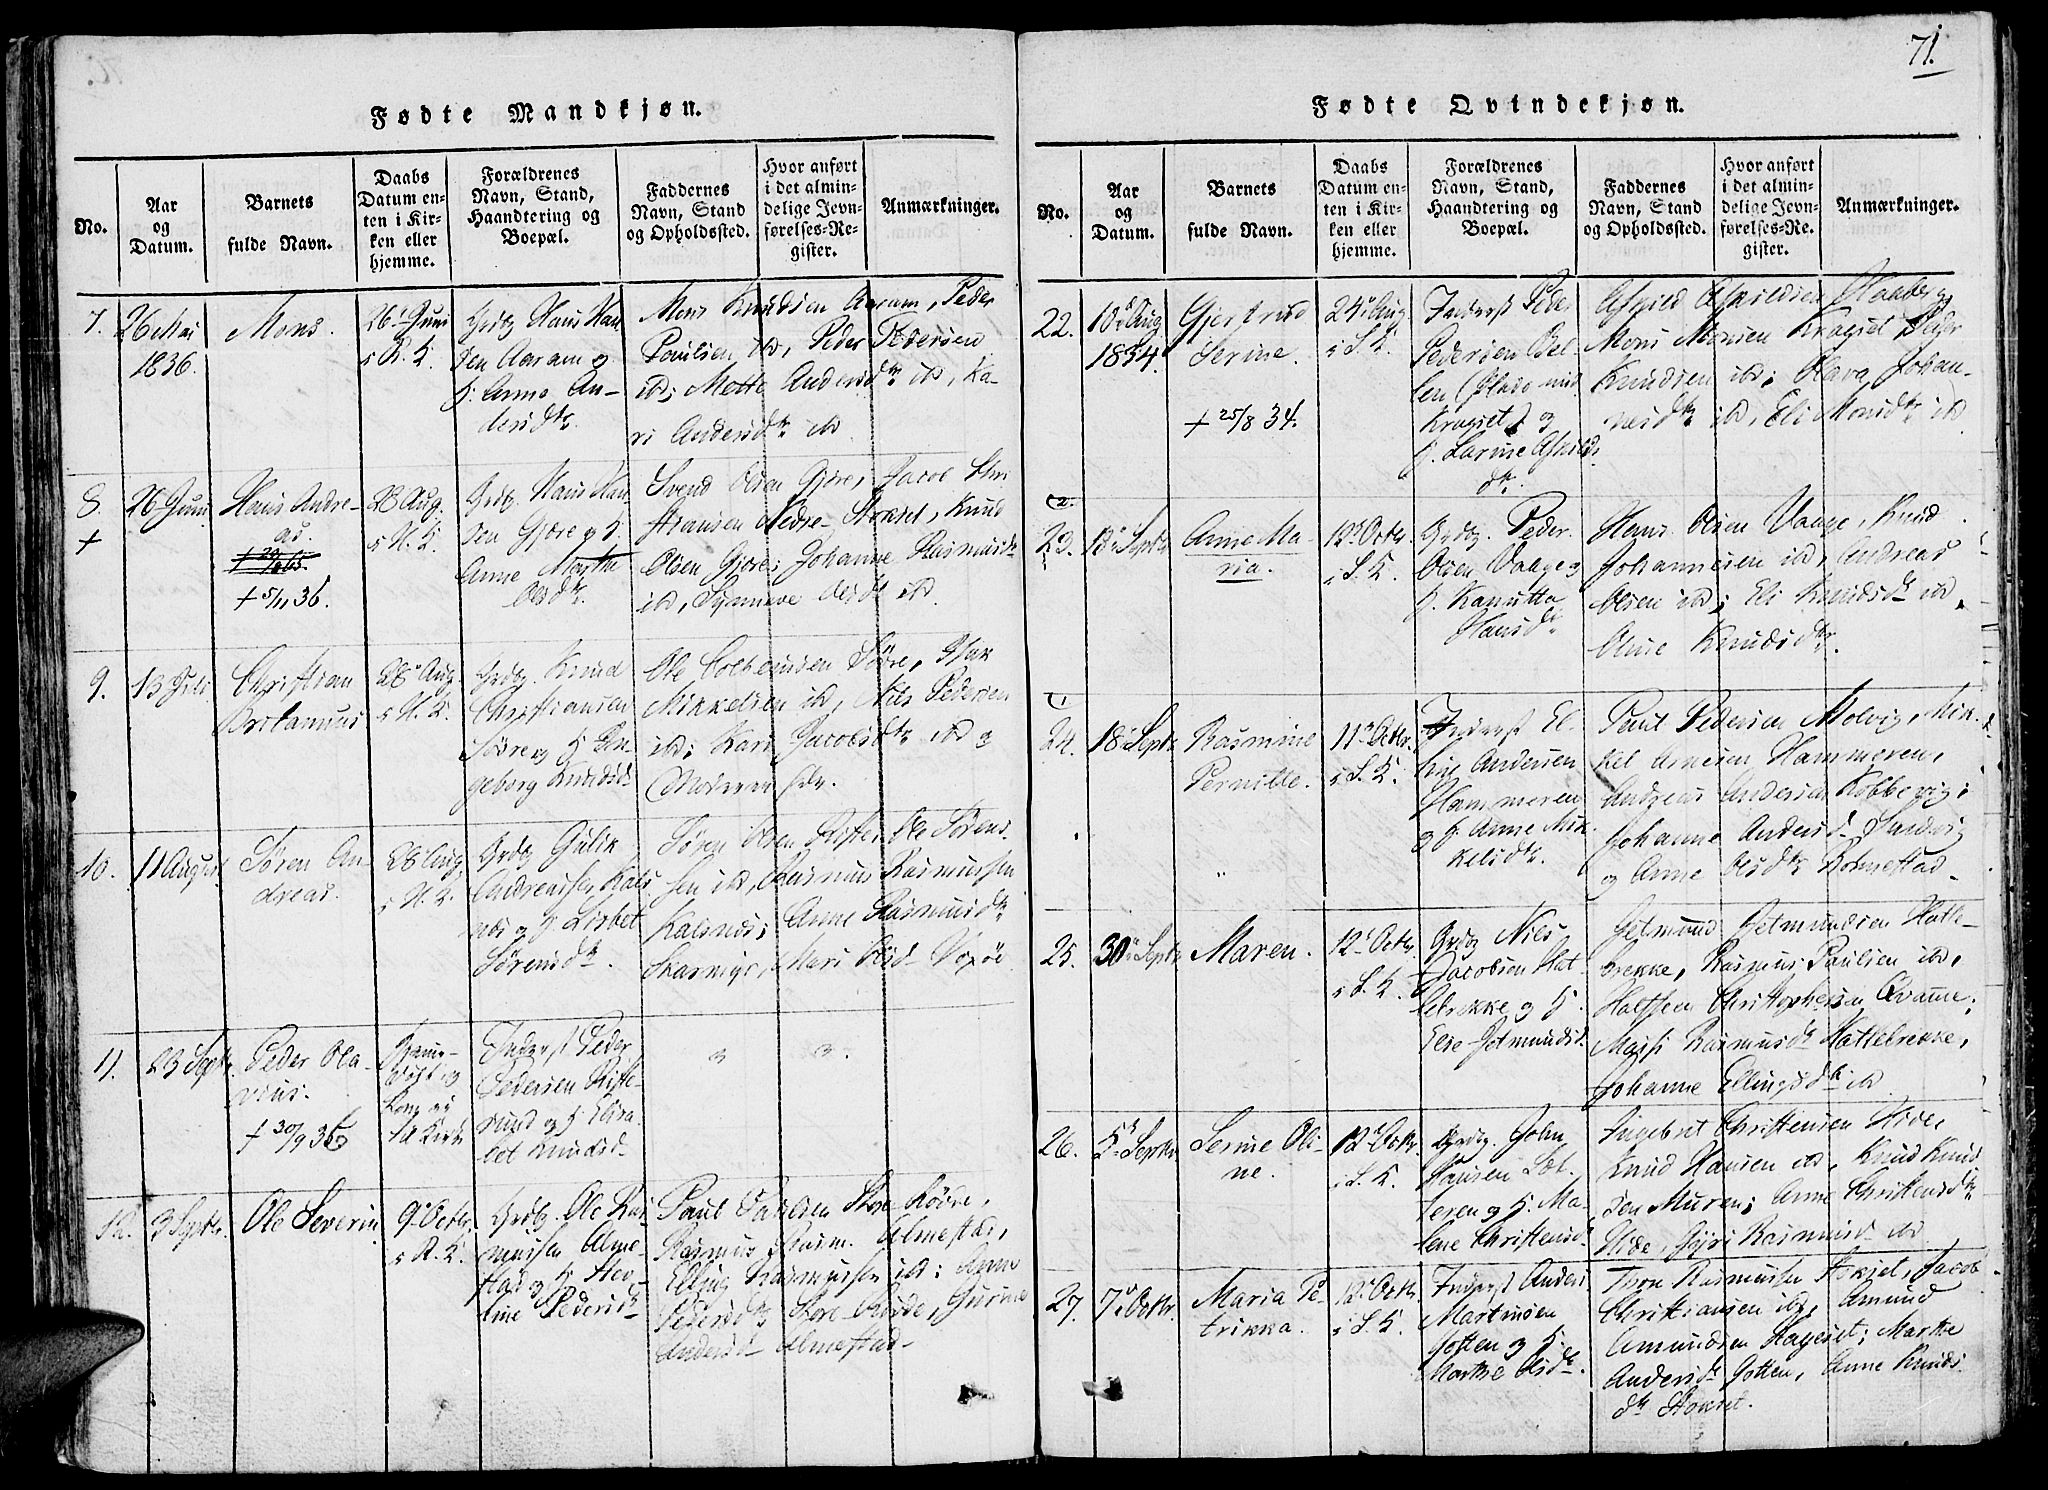 71.
Fødte Mandkjøn.
No.
Aar og Datum.
Barnets fulde Navn.
Daabs Datum enten i Kirken eller hjemme.
Forældrenes Navn, Stand, Haandtering og Boepæl.
Faddernes Navn, Stand og Opholdssted.
Hvor anført i det almindelige Jevnførelses-Register.
Anmærkninger.
7.
26 Mai
1836.
Mons.
26 Juni
i R. K.
Grdbg. Hans Han
sen Aaram og
h. Anne An-
dersdtr.
Mons Knudsen Aaram, Peder
Paulsen ibd, Peder Pedersen
ibd; Mette Andersdtr ibd, Ka-
ri Andersdtr ibd
8.
+
26 Juni
Hans Andre-
as.
+ 5/11 36.
28 Aug.
i H. K.
Grdbg. Hans Han
sen Gjøre og h.
Anne Marthe
Olsdtr.
Svend Olsen Gjøre, Jacob Chri
stiansen Nedre-Stokset, Knud
Olsen Gjøre; Johanne Rasmusdtr
ibd, Synneve Olsdt ibd.
9.
13 Juli
Christian
28 Aug.
i H. K.
Grdbg. Knud
Christiansen
Søre og h. In-
geborg Knudsd.
Ole Søre, Isak
Mikkelsen ibd, Nils Pedersen
ibd; Kari Jacobsdtr ibd og
Moderen selv.
10.
11 August
Søren An-
dreas.
28 Aug.
i H. K.
Grdbg. Gulik
Andreassen Kals
næs og h. Lisbet
Sørensdtr.
Søren Olsen Riste, Ole Sørens
sen ibd, Rasmus Rasmussen
Kalsnæs; Anne Rasmusdtr
Mari Olsd
11.
23 Septbr.
Peder Ola-
vius.
+ 30/9 36
Inderst Peder
Pedersen Riste-
sund og h. Elisa-
bet Knudsd
12.
3 Septbr.
Ole Severin
9 Octbr.
i R. K.
Grdbg. Ole Ras
mussen Alme-
stad og h. Stev-
line Pedersd
Paul Paulsen Store-Rødde,
Rasmus Rasm. Almestad,
Elling Rasmussen ibd; Anne
Pedersdtr Store-Rødde, Gurine
Andersd Almestad
Fødte Qvindekjøn.
No.
Aar og Datum.
Barnets fulde Navn.
Daabs Datum enten i Kirken eller hjemme.
Forældrenes Navn, Stand, Haandtering og Boepæl.
Faddernes Navn, Stand og Opholdssted.
Hvor anført i det almindelige Jevnførelses-Register.
Anmærkninger.
22.
10 Aug
1834.
Gjertrud
Serine.
+ 25/8 34.
24 Aug
i S. K.
Inderst Peder
Pedersen
Kragset og
h. Larine Askilds
dtr.
Askild Askildsen Haaberg
Mons Monsen Kragset, Peder
Knudsen ibd; Olava Johan-
nesdtr ibd, Eli Monsdtr ibd
23.
13 Septbr
Anne Ma-
ria.
12 Octbr.
i S. K.
Grdbg. Peder
Olsen Vaage og
h. Kanutta
Hansdtr
Hans Olsen Vaage, Knud
Johannesen ibd, Andreas
Olsen ibd; Eli Knudsdtr ibd
Oline Knudsdtr.
24.
18 Septbr
Rasmine
Pernille.
11 Octbr.
i S. K.
Inderst El-
ling Andersen
Hammeren
og h. Anne Mik-
kelsdtr.
Paul Pedersen Molvig, Mik-
kel Arnesen Hammeren,
Andreas Andersen Kobbevig;
Johanne Andersd Sandvig
og Anne Olsdtr Rohnestad
25.
30 Septbr
Maren.
12 Octbr
i S. K.
Grdbg Niels
Jacobsen Hat-
lebrekke og h.
Else Jetmundsd
Jetmund Jetmundsen Hatle-
brekke, Rasmus Paulsen ibd,
Christophersen Qvamme;
Massi Rasmusdtr Hatlebrekke,
Johanne Ellingsdtr ibd
26.
5 Septbr
Serine Oli-
ne.
12 Octbr.
i S. K.
Grdbg. John
Hansen
h. Ma-
lene Christensd
Ingebret Christensen Hide,
Knud Hansen ibd, Knud Knud
sen Muren; Anne Christensdtr
Hide, Gjøri Rasmusd ibd
27.
7 Octbr.
Maria Pe-
trikka.
12 Octbr.
i S. K.
Inderst Anders
Martinsen
Jotten og h.
Marthe Olsdtr.
Thor Rasmussen Stokset, Jacob
Christiansen ibd, Amund
Amundsen Hageset; Marthe
Andersdtr Jotten, Anne Knuds
dtr Stokset.